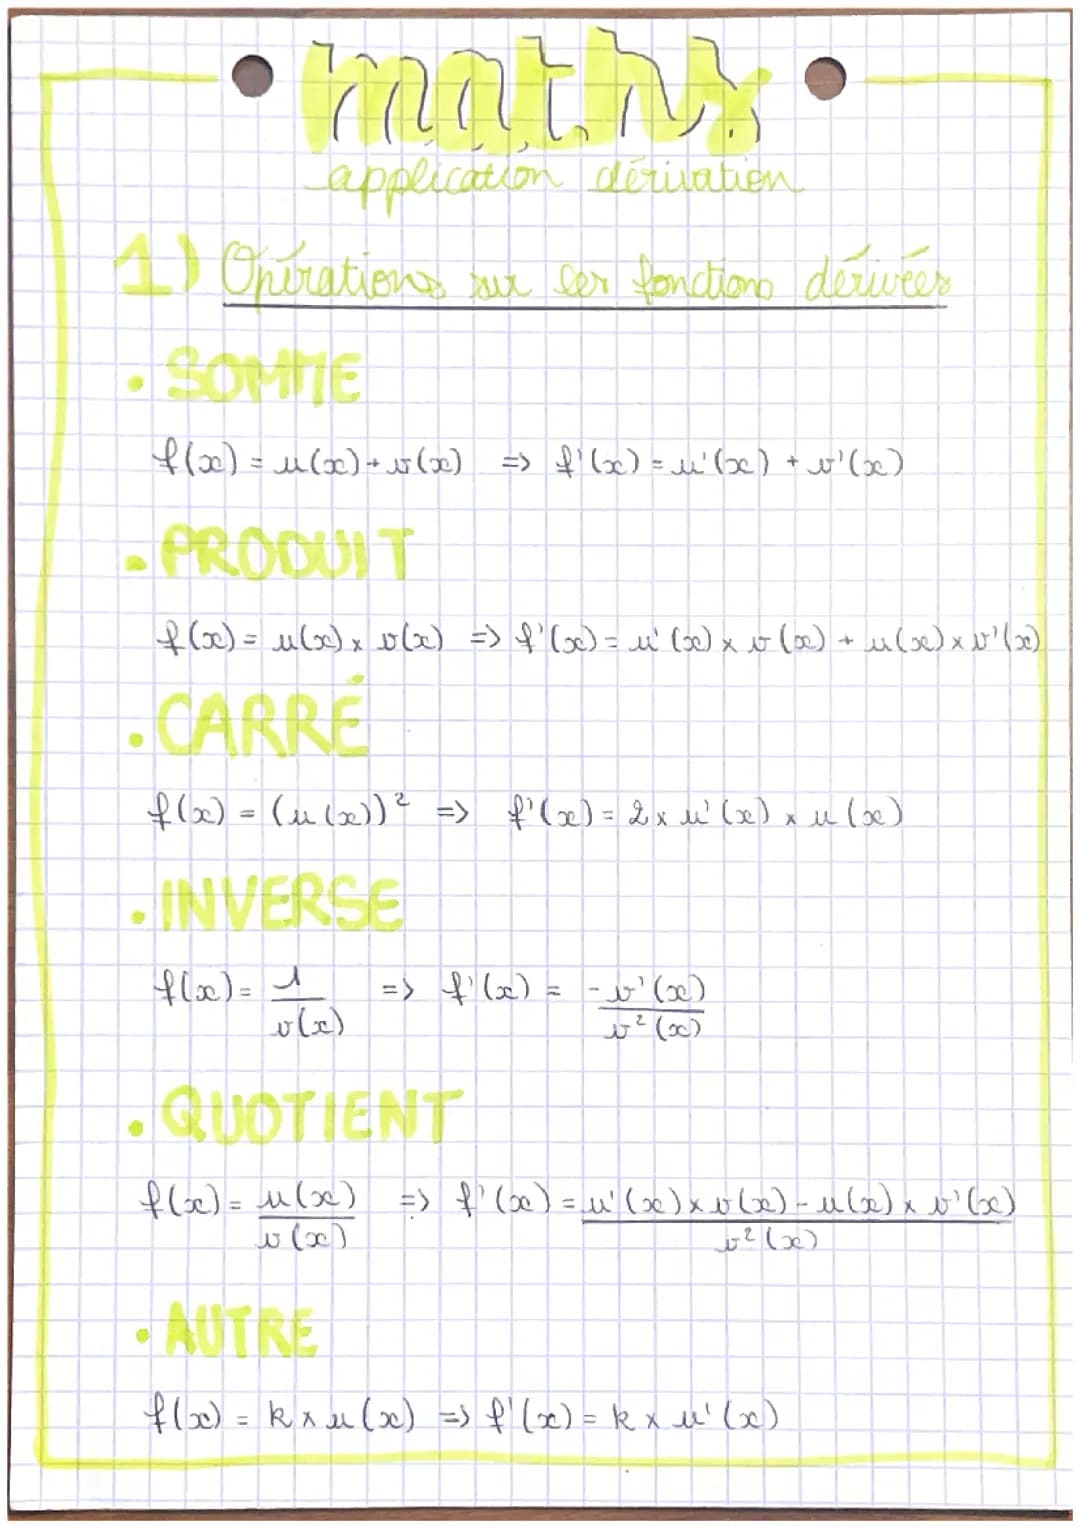 maths
application dérivation
1) Opérations sur les fonctions dérivées
• SOMME
f(x) = u(x) + v(x) => f'(x) = u'(x) + v'(x)
• PRODUIT
f(x) = u(x) × v(x) => f'(x) = u'(x) × v(x) + u(x) × v'(x)
• CARRÉ
f(x) = (u(x))² => f'(x) = 2 × u'(x) × u(x)
• INVERSE
f(x) = 1/v(x) => f'(x) = -v'(x)/v²(x)
• QUOTIENT
f(x) = u(x)/v(x) => f'(x) = u'(x) × v(x) - u(x) × v'(x)/v²(x)
• AUTRE
f(x) = k × u(x) => f'(x) = k × u'(x)